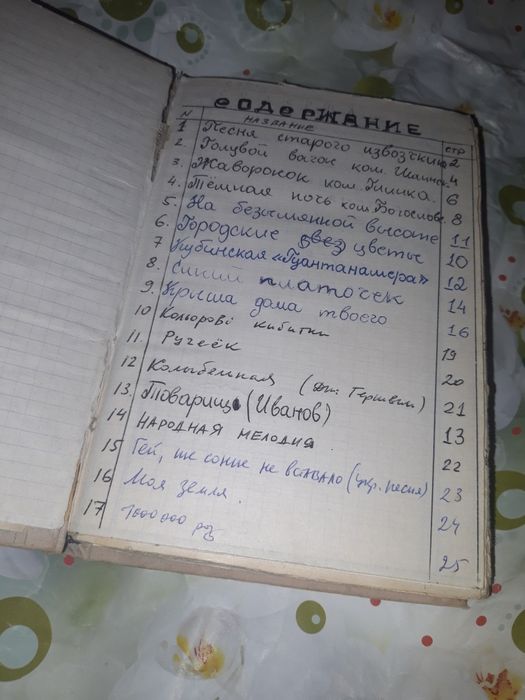 СОДЕРЖАНИЕ
N НАЗВАНИЕ стр
1 Песня старого извозчика 2
2. Голубой вагон ком. Шаинск. 4
3. Жаворонок ком. Глинка. 6
4. Тёмная ночь ком. Богословс. 8
5. На безымянной высоте 11
6. Городские цветы 10
7 Кубинская "Гуантанамера" 12
8. Синий платочек 14
9. Крыша дома твоего 16
10 Кольорові кибитки 19
11. Ручеёк 20
12 Колыбельная (Гершвин) 21
13. Товарищ (Иванов) 13
14 НАРОДНАЯ МЕЛОДИЯ. 22
15 Гей, ще сонце не вставало (укр. песня) 23
16 Моя земля. 24
17 1000 000 роз 25